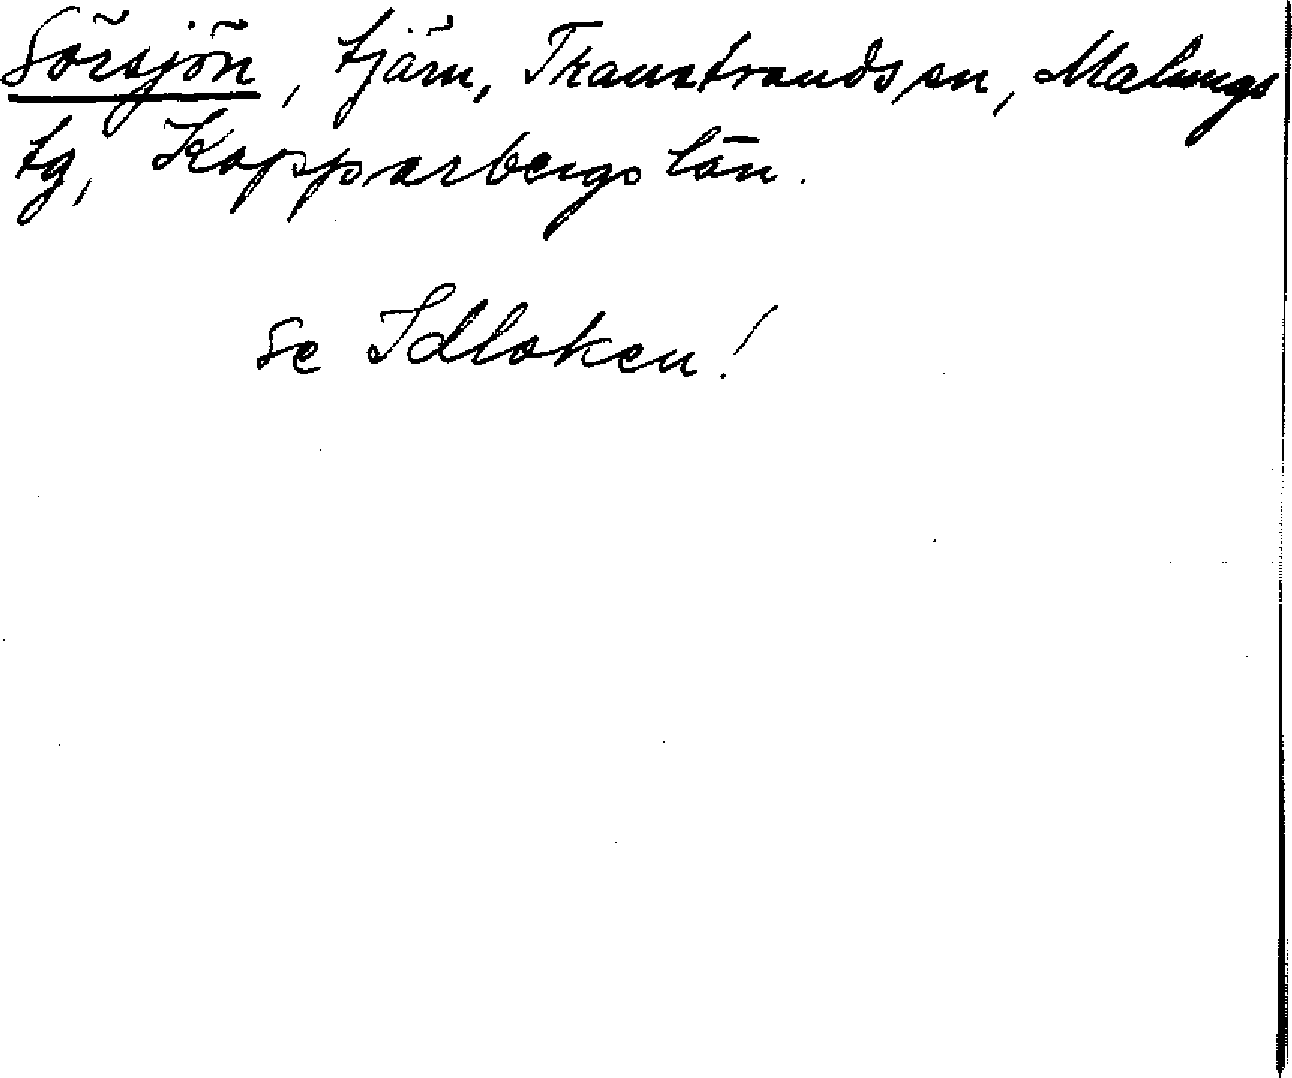 Sörsjön, tjärn, Transtrands sn, Malungs
tg, Kopparbergs län.
Se Idloken!